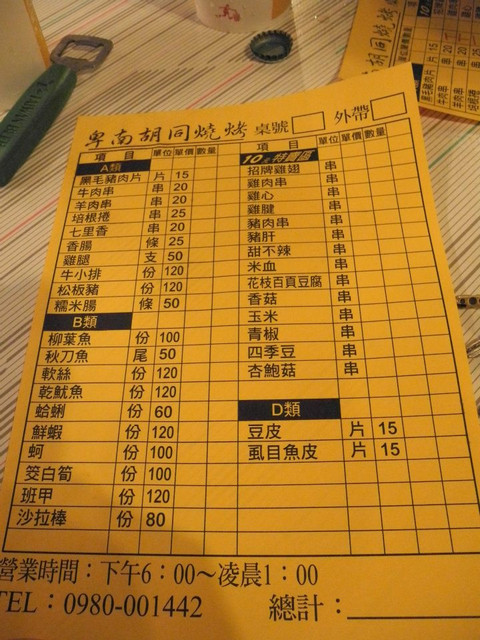 卑南胡同燒烤 桌號 外帶
項目 單位 單價 數量
A類
黑毛豬肉片 片 15
牛肉串 串 20
羊肉串 串 20
培根捲 串 25
七里香 串 20
香腸 條 25
雞腿 支 50
牛小排 份 120
松板豬 份 120
糯米腸 條 50
B類
柳葉魚 份 100
秋刀魚 尾 50
軟絲 份 120
乾魷魚 份 120
蛤蜊 份 60
鮮蝦 份 120
蚵 份 100
筊白筍 份 100
班甲 份 120
沙拉棒 份 80
項目 單位 單價 數量
10元特惠區
招牌雞翅 串
雞肉串 串
雞心 串
雞腱 串
豬肉串 串
豬肝 串
甜不辣 串
米血 串
花枝百頁豆腐 串
香菇 串
玉米 串
青椒 串
四季豆 串
杏鮑菇 串
D類
豆皮 片 15
虱目魚皮 片 15
營業時間：下午6：00～凌晨1：00
TEL：0980-001442 總計：